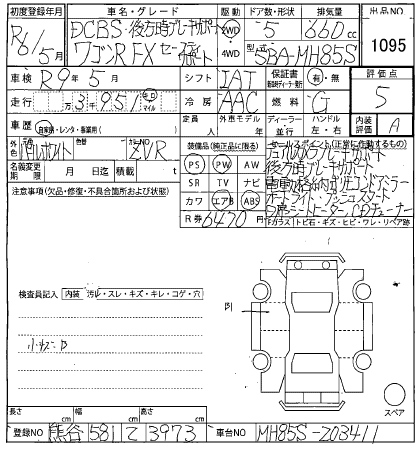 初度登録年月 車名・グレード 駆動 ドア数・形状 排気量 出品NO
R6/5月 DCBS・後方時ブレーキサポート 2WD 5 660cc 1095
ワゴンR FX セーフティサポート 4WD 型式 5BA-MH85S
車検 R9年5月 シフト IAT 保証書 有・無 評価点
走行 万3千951 キロ マイル 冷房 AAC 燃料 G 5
車歴 自家用・レンタ・事業用( ) 定員 人 外車モデル 年 ディーラー 並行 ハンドル 左・右 内装評価 A
外色 パールホワイト 色替 カラーNO ZVR
装備品(純正品に限る) セールスポイント(正常に作動するもの)
名義変更期限 月 日迄 積載 t
PS PW AW
SR TV ナビ
カワ エアB ABS
R券 6470円
デュアルカメラブレーキサポート
後方時ブレーキサポート
電動格納式リモコンドアミラー
オートライト・プッシュスタート
シートヒーター、CDチューナー
Fガラス(トビ石・キズ・ヒビ・ワレ・リペア跡
注意事項(欠品・修復・不具合箇所および状態)
検査員記入 内装 汚レ・スレ・キズ・キレ・コゲ・穴
小キズ
B1
スペア
長さ cm 幅 cm 高さ cm
登録NO 熊谷 581 て 3973 車台NO MH85S-203411